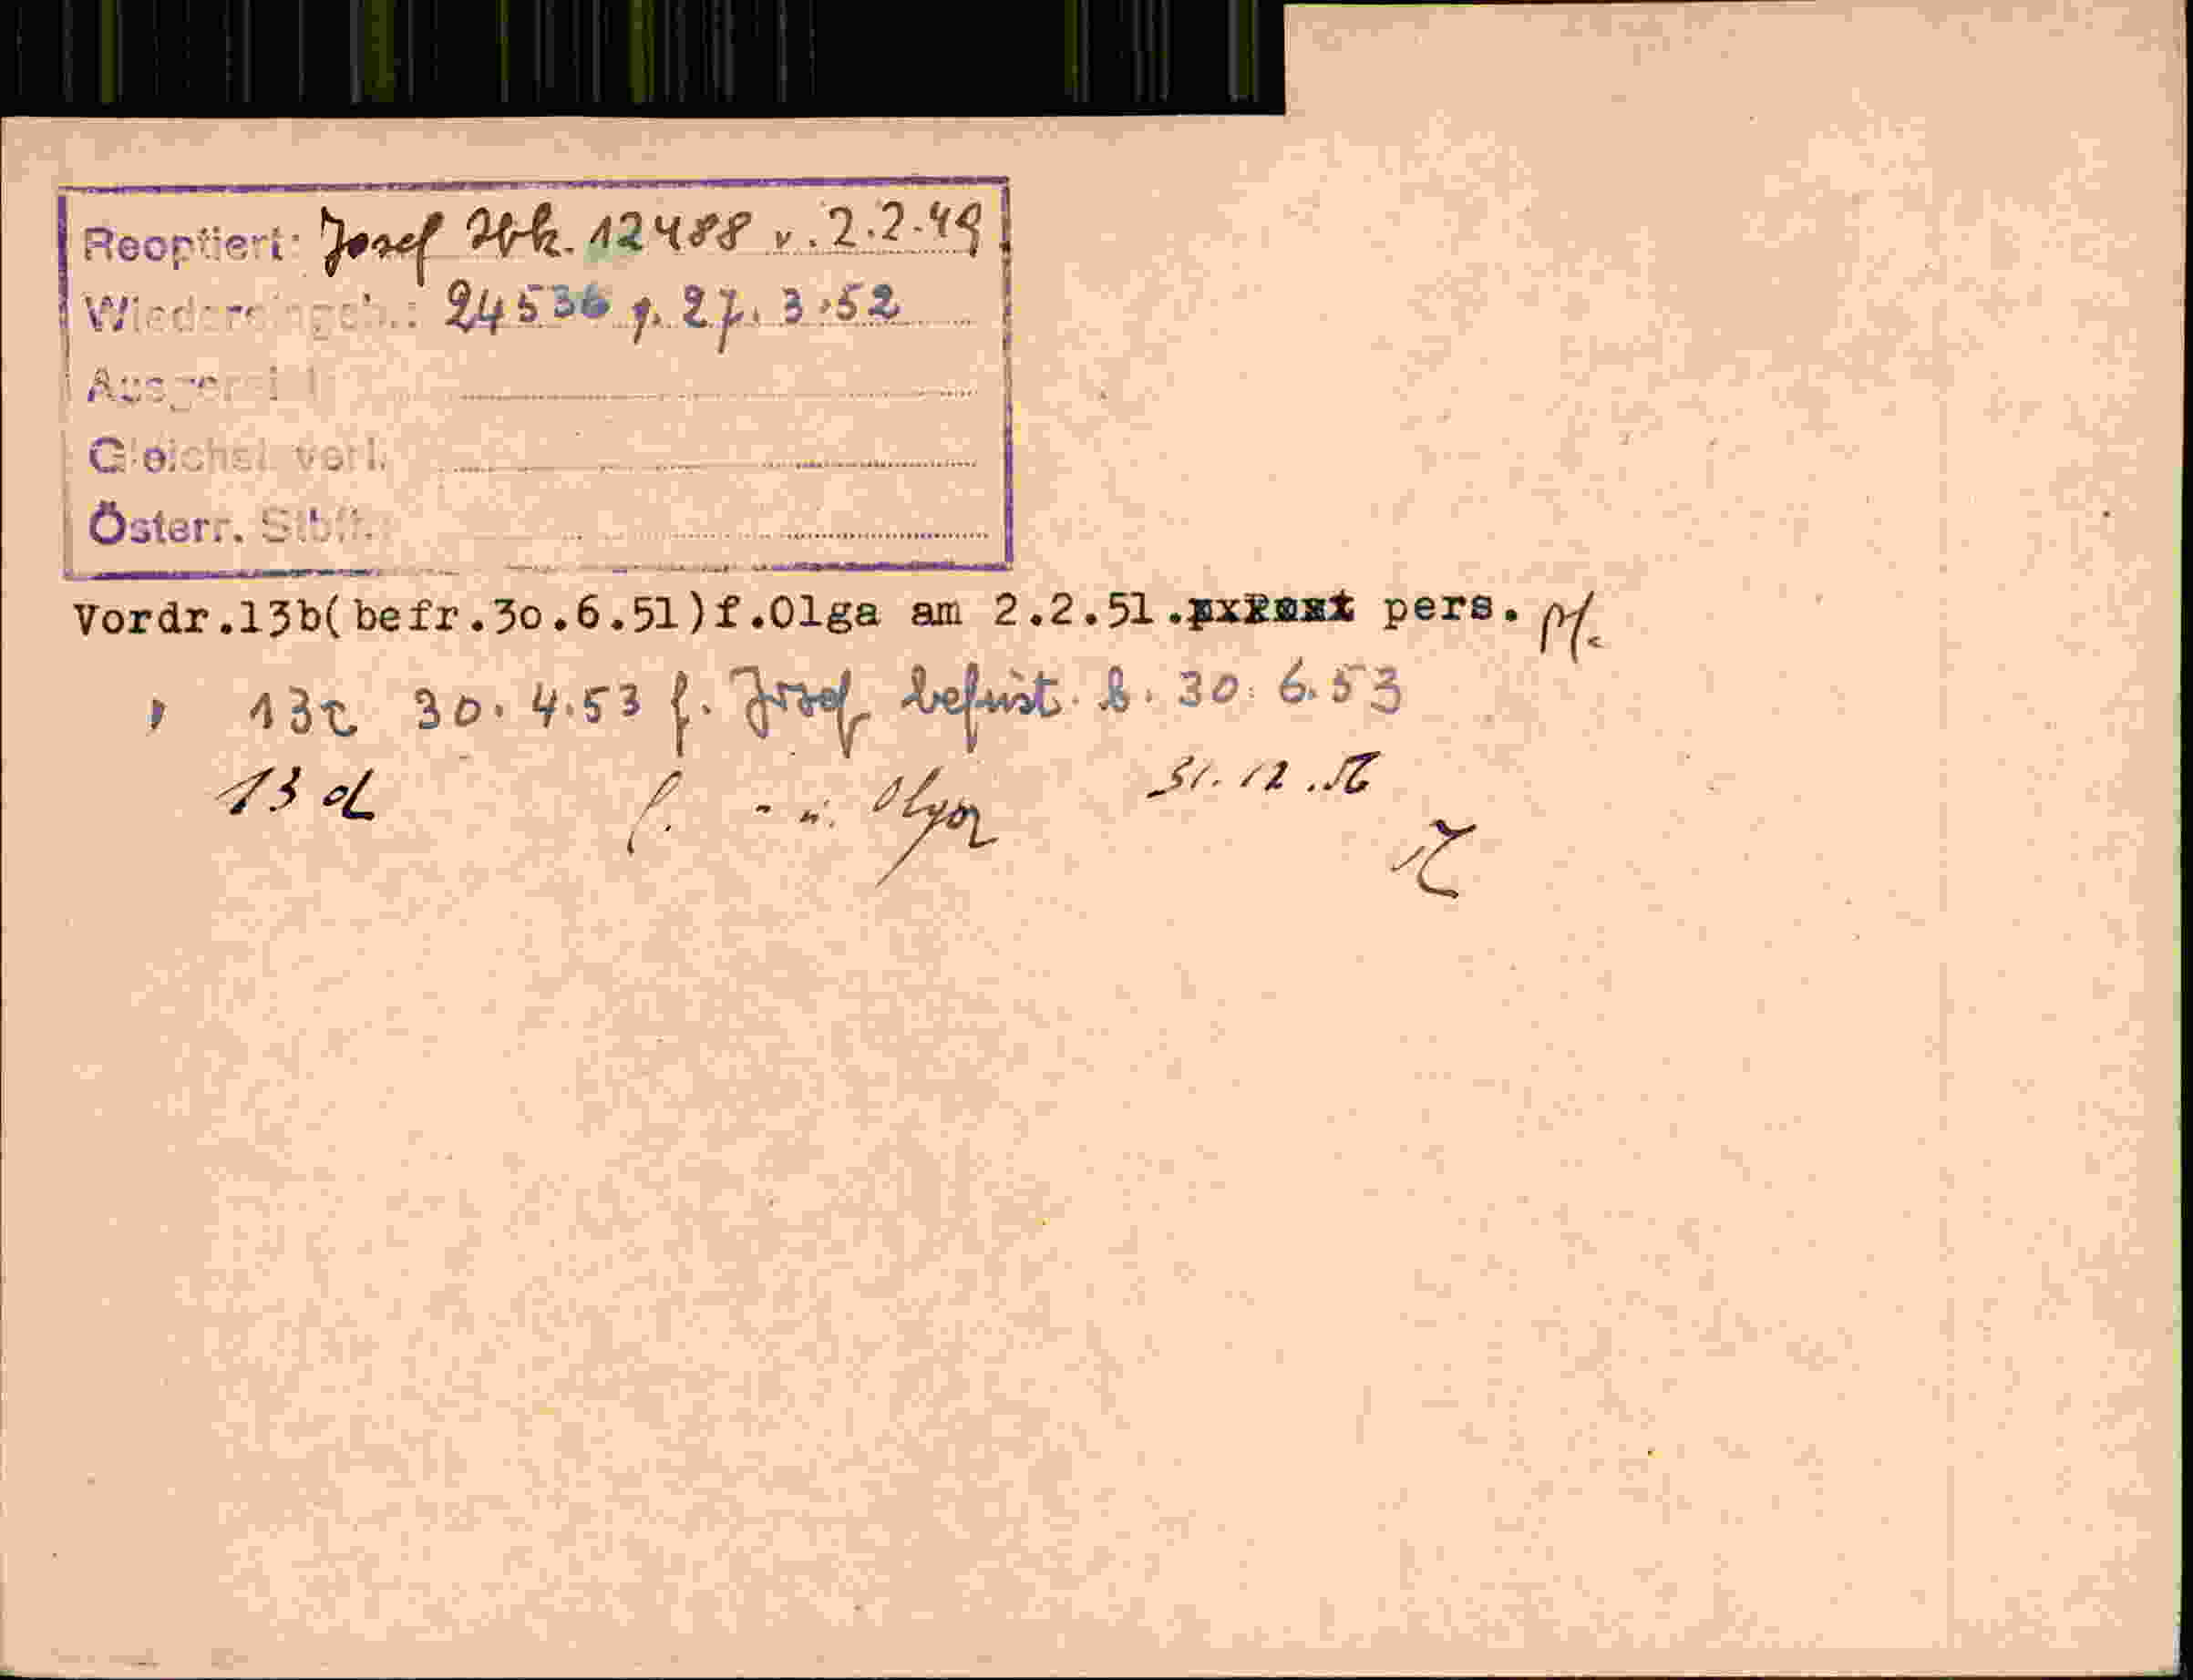 Reoptiert: Josef 12488 v. 2.2.49
Wiedereingeb.: 24536 v. 27. 3.52
Ausgereist
Gleichst. verl.
Österr. Stbft.
Vordr.13b(befr.30.6.51)f.Olga am 2.2.51. pers.
" 13c 30.4.53 f. Josef befrist. b. 30.6.53
13d f. - u. Olga 31.12.